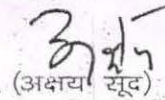 (अक्षय सूद)